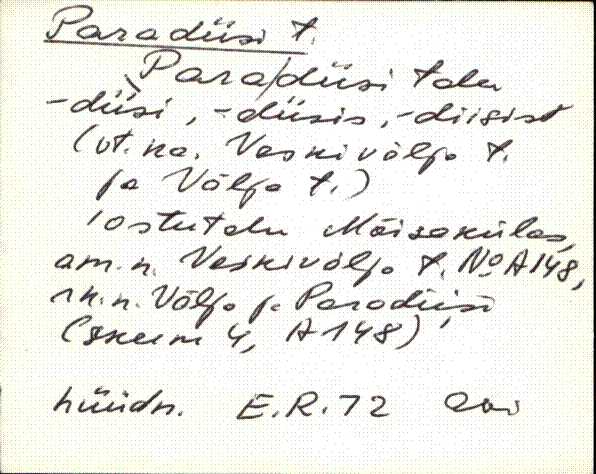 Paradiisi t.
Para/diisi talu
-diisi, -diisis, -diisist
(vt. ka. Veskivälja t.
ja Välja t.)
ostutalu Mõisakülas,
am. n. Veskivälja t. No A148,
rk. n. Välja ja Paradiisi
(skeem 4, A148)
hüüdn. E.R.72